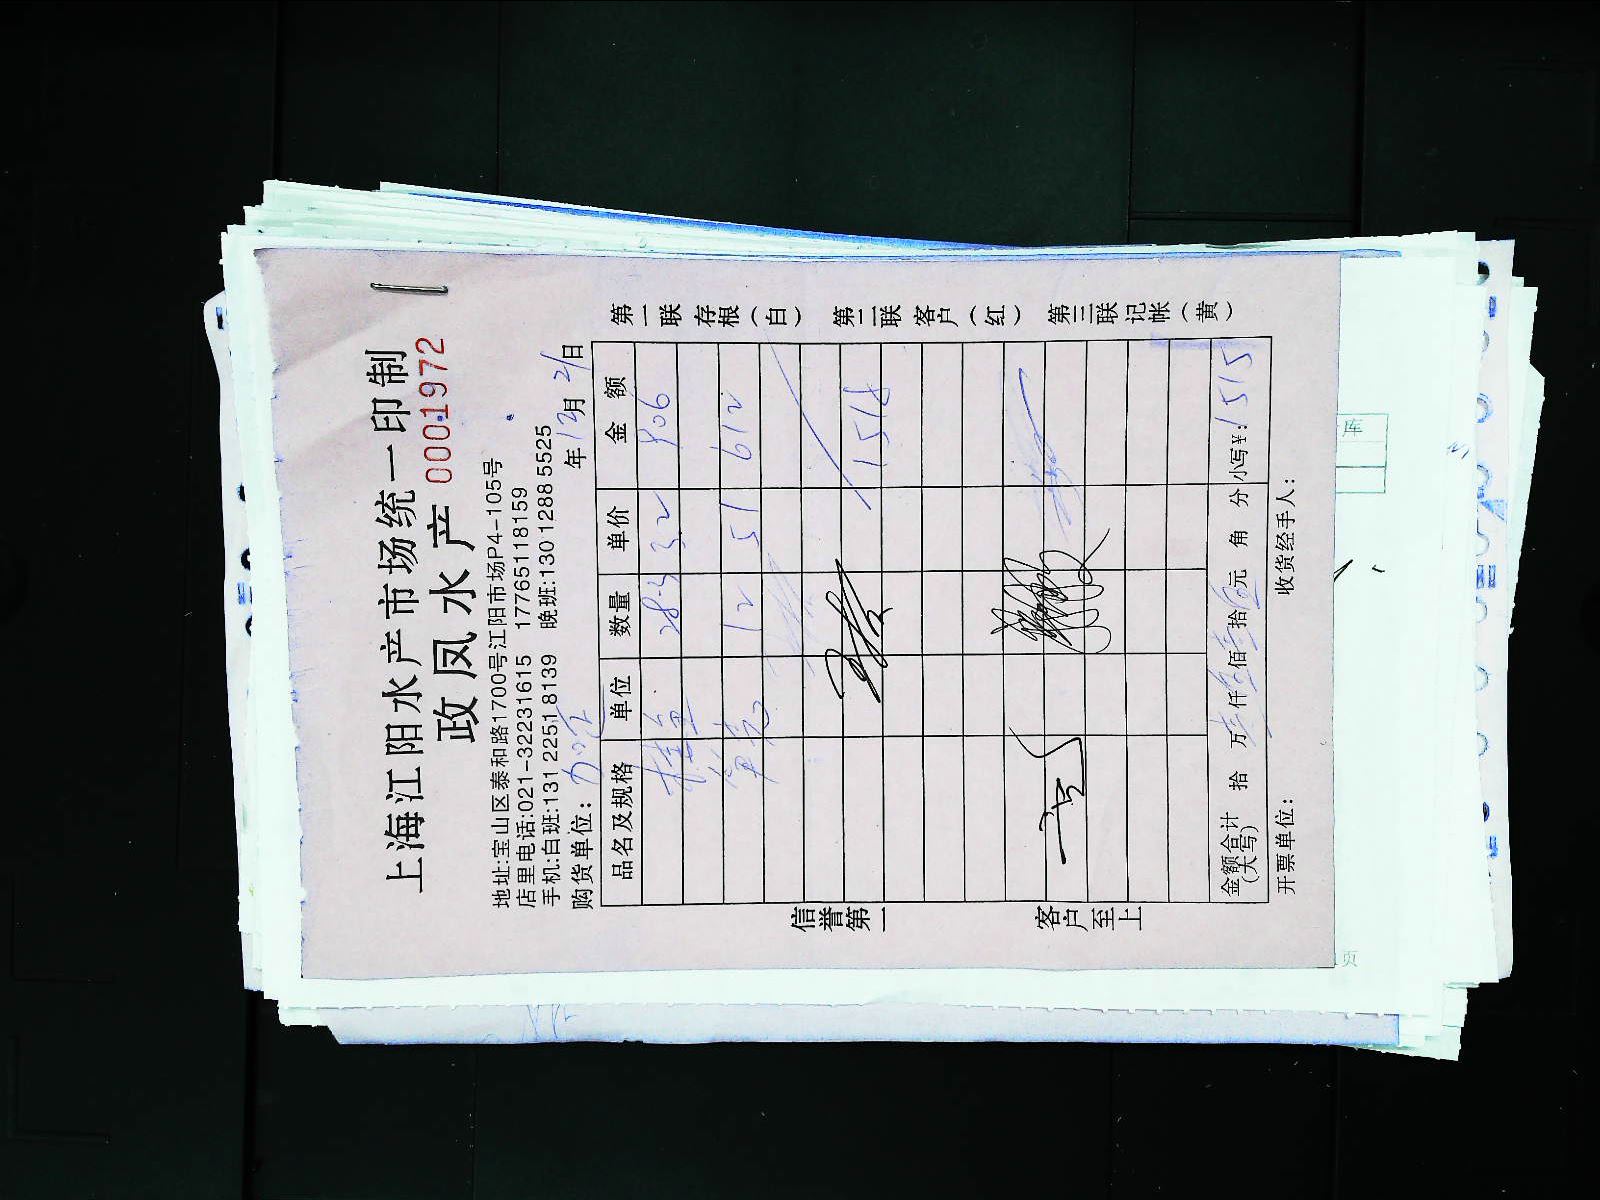 上海江阳水产市场统一印制
政凤水产 0001972
地址:宝山区泰和路1700号江阳市场P4-105号
店里电话:021-32231615 17765118159
手机:白班:131 2251 8139 晚班:130 1288 5525
购货单位: 年12月21日
品名及规格 单位 数量 单价 金额
桂鱼 28.3 32 906
12 51 612
1518
金额合计(大写) 拾 万壹仟伍佰壹拾伍元 角 分 小写¥:1515
开票单位: 收货经手人:
信誉第一
客户至上
第一联存根(白)
第二联客户(红)
第三联记帐(黄)
库
页